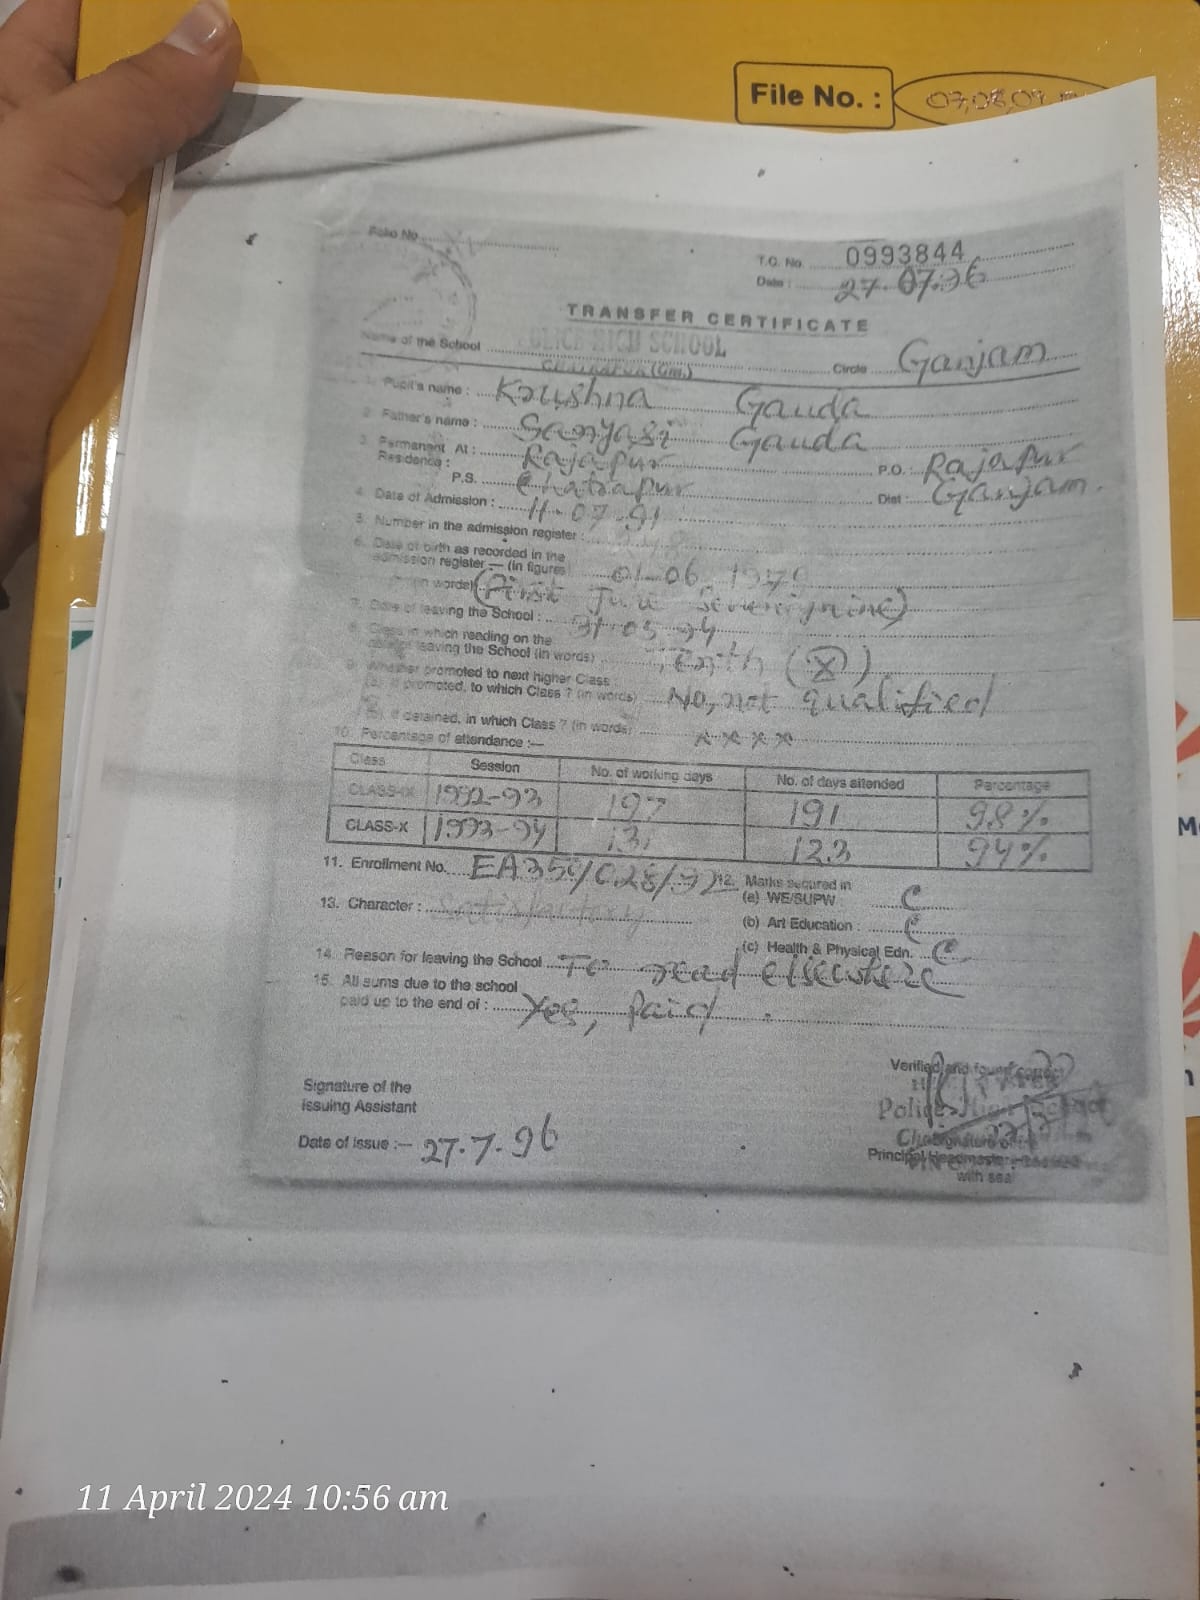 File No. :
Folio No
T.C. No. 0993844
Date : 27.07.96
TRANSFER CERTIFICATE
Name of the School HIGH SCHOOL
Circle Ganjam
1. Pupil's name : Krushna Gauda
2. Father's name : Sanyasi Gauda
3. Permanent At : Rajapur
Residence : P.O. Rajapur
P.S. Chatrapur Dist : Ganjam.
4. Date of Admission : 11-07-91
5. Number in the admission register :
6. Date of birth as recorded in the
admission register — (in figures 01-06.1979
(in words) (First June Seventynine)
7. Date of leaving the School : 31-05-94
8. Class in which reading on the
leaving the School (in words) Tenth (X)
9. Whether promoted to next higher Class
(a) If promoted, to which Class ? (in words) No, not qualified
(b) If detained, in which Class ? (in words) x x x x
10. Percentage of attendance :—
Class Session No. of working days No. of days attended Percentage
CLASS-IX 1992-93 197 191 98%
CLASS-X 1993-94 131 123 94%
11. Enrollment No.
12. Marks secured in
(a) WE/SUPW : C
13. Character : Satisfactory
(b) Art Education : C
(c) Health & Physical Edn. C
14. Reason for leaving the School To read elsewhere
15. All sums due to the school
paid up to the end of : Yes, Paid.
Verified and found correct
Signature of the
Issuing Assistant
Police High School
Date of issue :— 27.7.96
Signature of
Principal Headmaster
with seal
11 April 2024 10:56 am